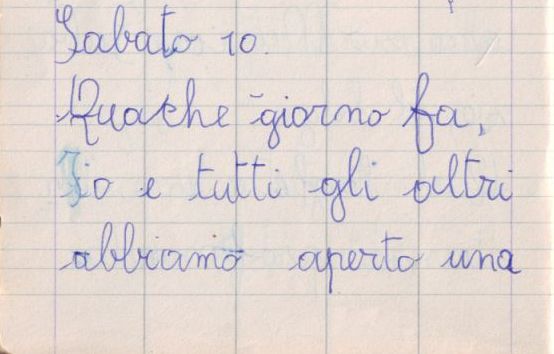 Sabato 10.
Quache giorno fa,
Io e tutti gli altri
abbiamo aperto una